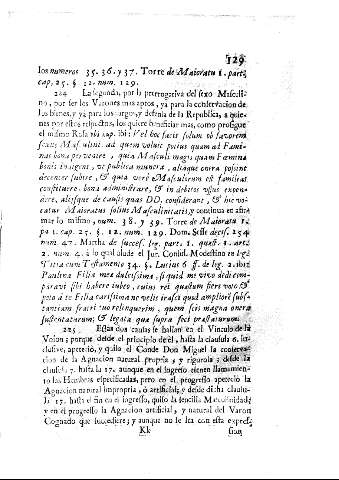 129
los numeros 35. 36. y 37. Torre de Maioratu 1. part.
cap. 25. §. 12. num. 129.
224 La segunda, por la prerrogativa del sexo Masculi-
no, por ser los Varones mas aptos, yà para la conservacion de
los bienes, y yà para los
y defensa de la Republica, a quie-
nes por estos respectos, los quiere beneficiar mas, como prosigue
el mismo Rosa ubi sup. ibi: Vel hoc facit solum ob favorem
sexus Masculini, ad quem voluit potius quam ad Fœmi-
nas bona pervenire, quia Masculi magis quam Fœmina
bonis indigent, ut publica munera, aliaque onera possint
decenter subire, & quia verè Masculorum est familias
constituere, bona administrare, & in debitos usus expen-
dere, aliisque de causis quas DD. considerant, & hic vo-
catur Maioratus solius Masculinitatis, y continua en afir-
mar lo mismo, num. 38. y 39. Torre de Maioratu 12
pa 1. cap. 25. §. 12. num. 129. Dom.
decis. 254.
num. 47. Martha de success. leg. part. 1. quæst. 1. art.
2. num. 4. à lo qual alude el Jur. Consul. Modestino en la
Titia cum Testamento 34. §. Lucius 6. ff. de leg. 2. ibi:
Paulina Filia mea dulcissima, si quid me vivo dedi com-
paravi sibi habere iubeo, cuius rei quæstum fieri veto &
peto à te Filia carissima ne velis irasci quod ampliorem subs-
tantiam fratri tuo reliquerim, quem scis magna onera
sustentaturum, & legata quæ supra feci præstaturum.
225 Estas dos causas se hallan en el Vinculo de la
Voion; porque desde el principio de èl, hasta la clausula 6. in-
clusive, apeteciò, y quiso el Conde Don Miguel la conserva-
cion de la Agnacion natural propria, y rigurosa; desde la
clausula 7. hasta la 17. aunque en el ingreso tienen llamamien-
to las Hembras especificadas, pero en el progresso apeteciò la
Agnacion natural impropria, ò artificial; y desde dicha clausu-
la 17. hasta el fin en el ingresso, quiso la sencilla Masculinidad;
y en el progresso la Agnacion artificial, y natural del Varon
Cognado que succediere; y aunque no se lea con esta expres-
Kk
sion